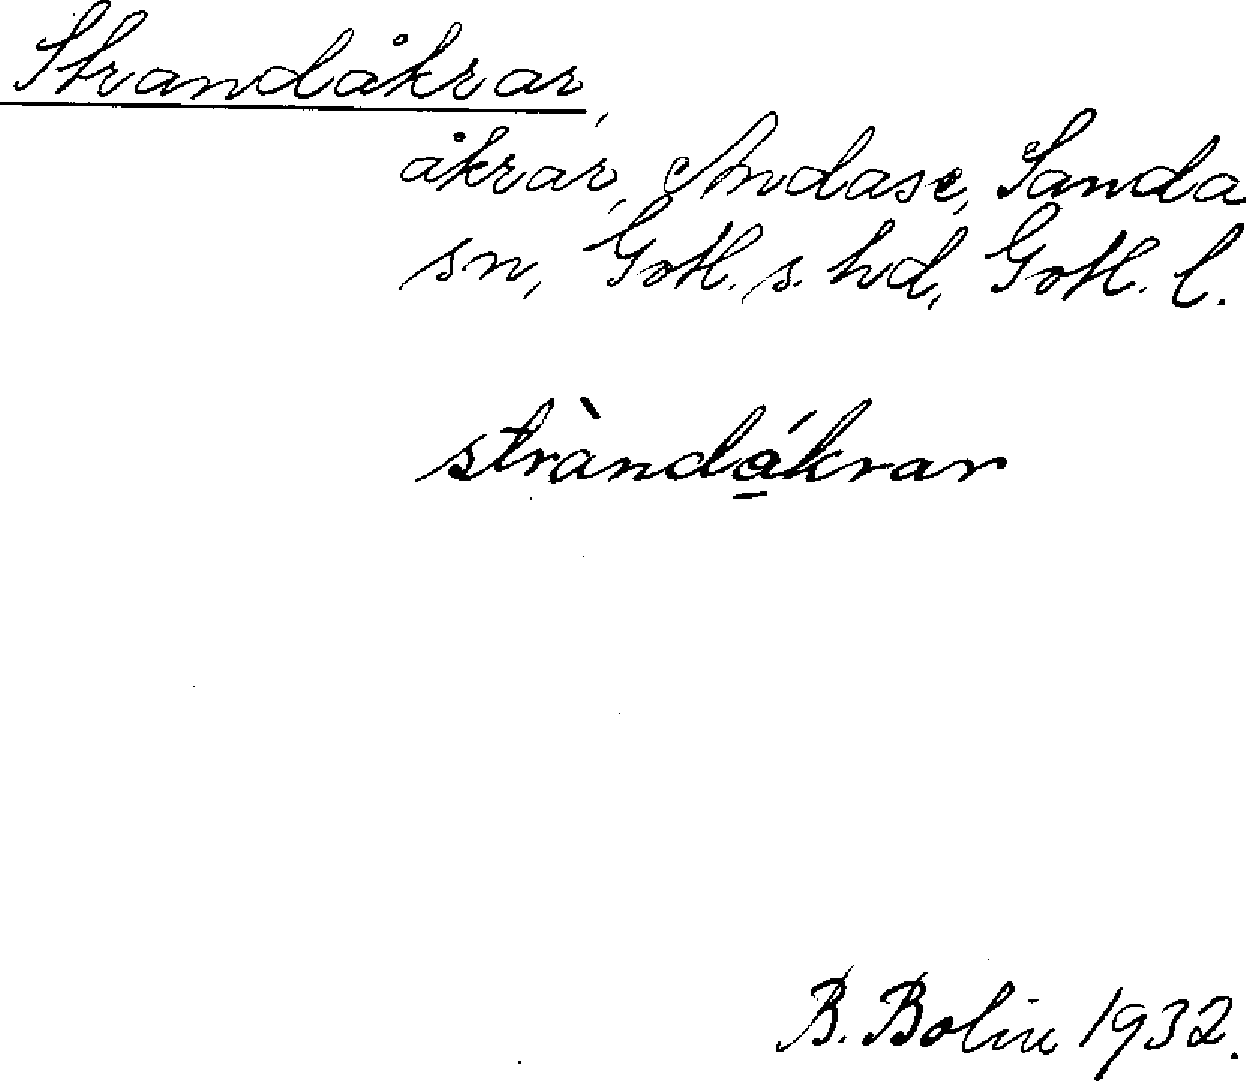 Strandåkrar,
åkrar, Andase, Sanda
sn, Gotl. s. hd, Gotl. l.
stràndá̱krar
B. Bolin 1932.